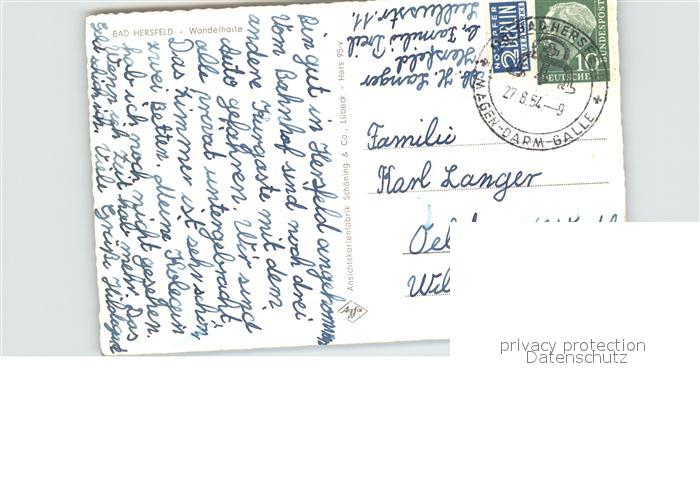 BAD HERSFELD - Wandelhalle
Bin gut in Hersfeld angekommen
Vom Bahnhof sind noch drei
andere Kurgäste mit dem
Auto gefahren. Wir sind
alle privat untergebracht
Das Zimmer ist sehr schön,
zwei Betten. Meine Kolegin
hab ich noch nicht gesehen.
Wenn ich Zeit hab mehr. Das
viele Grüße Hildegard
Ansichtskartenfabrik Schöning & Co., Lübeck - Hers 95-v
Abs. H. Langer
Hersfeld
b. Familie
Lullusstr. 11
NOTOPFER
2 BERLIN
STEUERMARKE
DEUTSCHE
BUNDESPOST
10
BAD HERSFELD
27.8.54.-9
MAGEN-DARM-GALLE
Familie
Karl Langer
privacy protection
Datenschutz